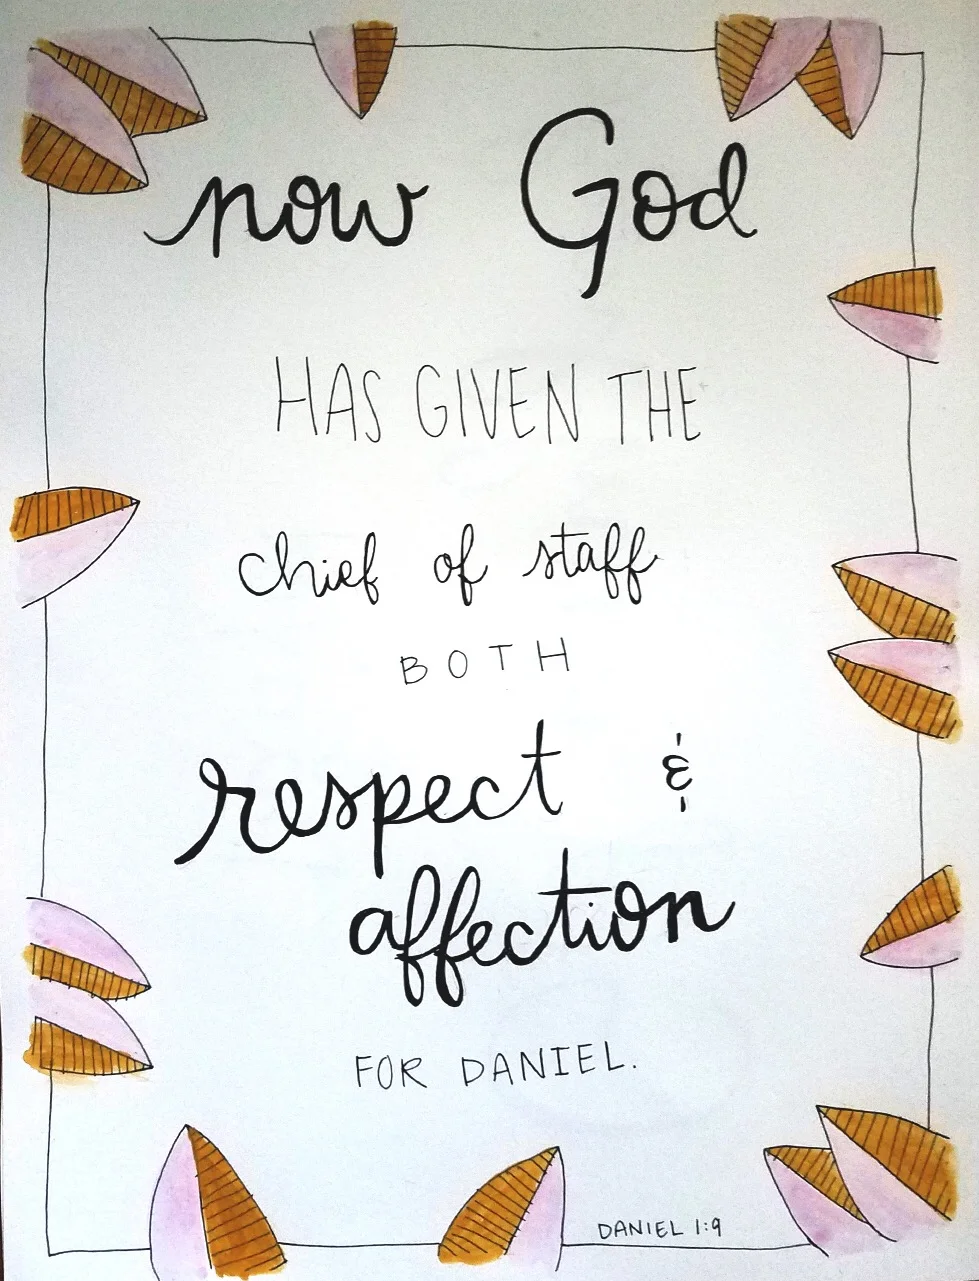 now God
HAS GIVEN THE
chief of staff
BOTH
respect &
affection
FOR DANIEL.
DANIEL 1:9